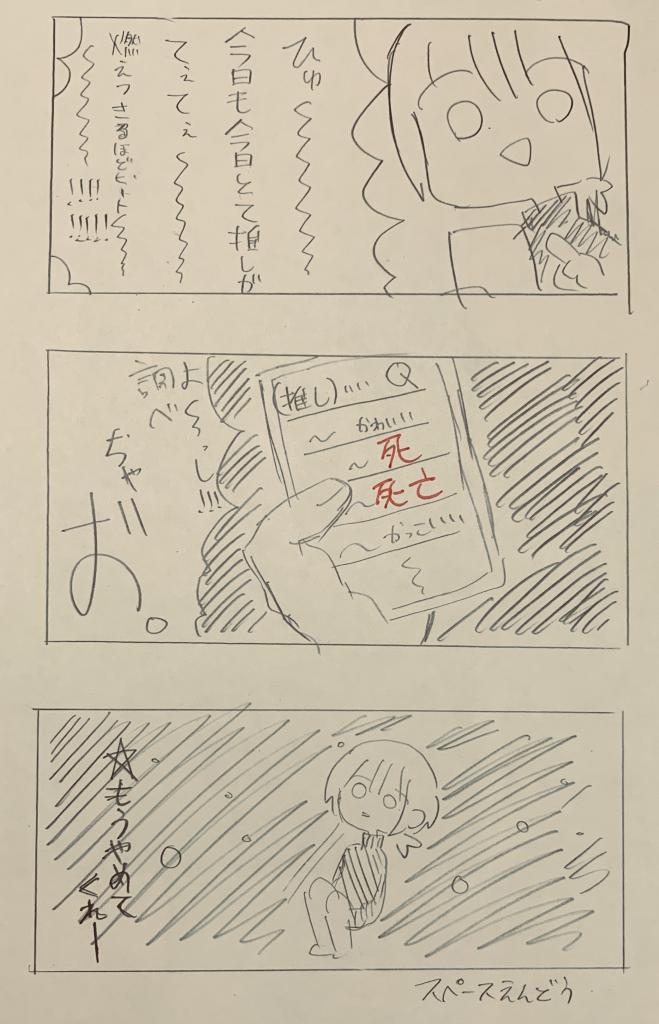 ひゅ〜〜〜
今日も今日とて推しが
てぇてぇ〜〜〜
燃えつきるほどビート〜〜
〜〜〜!!!!
!!!!!
よ〜っし!!!
調べ
ぢゃお。
(推し)
〜かわいい
〜死
〜死亡
〜かっこいい
☆もうやめて
くれー
スペースえんどう